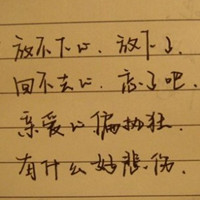 放不下心. 放下了.
回不去心. 忘了吧.
亲爱心偏执狂.
有什么好悲伤.